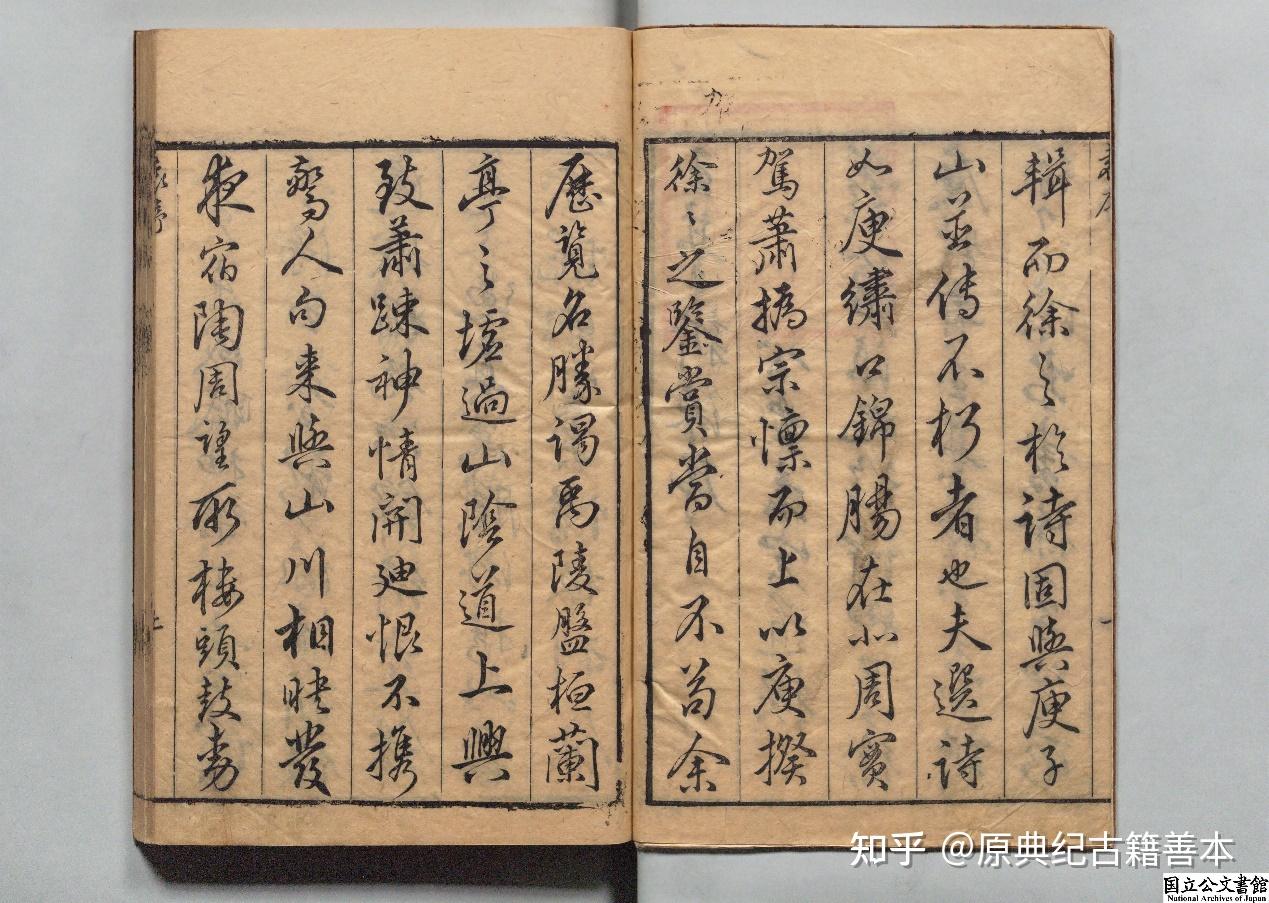 輯而徐〻於詩固與庾子
山並傳不朽者也夫選詩
如庾繡口錦腸在小周賓
駕蕭摛宗懍而上以庾揆
徐〻之鑒賞當自不苟余
歷覽名勝謁禹陵盤桓蘭
亭之墟過山陰道上興
致蕭踈神情開廸恨不携
驚人句来與山川相映發
夜宿陶周望所棲頭鼓動
知乎 @原典纪古籍善本
国立公文書館
National Archives of Japan